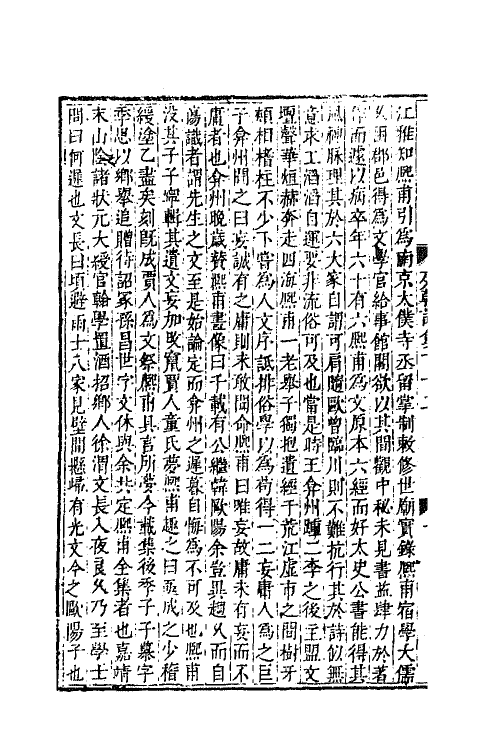 江雅知熙甫引為南京太僕寺丞留掌制敕修世廟實錄熙甫宿學大儒
久困郡邑得為文學官給事館閣欲以其間觀中秘未見書益肆力於著
作而遽以病卒年六十有六熙甫為文原本六經而好太史公書能得其
風神脉理其於六大家自謂可肩隨歐曾臨川則不難抗行其於詩似無
意求工滔滔自運要非流俗可及也當是時王弇州踵二李之後主盟文
壇聲華烜赫奔走四海熙甫一老舉子獨抱遺經于荒江虛市之間樹牙
頰相榰柱不少下嘗為人文序詆排俗學以為苟得一二妄庸人為之巨
子弇州聞之曰妄誠有之庸則未敢聞命熙甫曰唯妄故庸未有妄而不
庸者也弇州晚歲贊熙甫畫像曰千載有公繼韓歐陽余豈異趨久而自
傷識者謂先生之文至是始論定而弇州之遲暮自悔為不可及也熙甫
沒其子子寧輯其遺文妄加改竄賈人童氏夢熙甫趣之曰亟成之少稽
緩塗乙盡矣刻既成賈人為文祭熙甫具言所夢今載集後季子子慕字
季思以鄉舉追贈待詔冢孫昌世字文休與余共定熙甫全集者也嘉靖
末山陰諸狀元大綬官翰學置酒招鄉人徐渭文長入夜良久乃至學士
問曰何遲也文長曰頃避雨士人家見壁間懸歸有光文今之歐陽子也